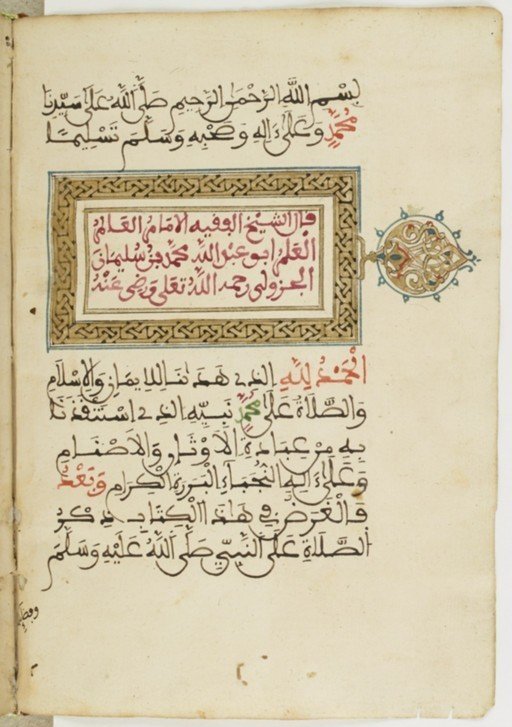 بِسْمِ اللَّهِ الرَّحْمَٰنِ الرَّحِيمِ صَلَّى اللَّهُ عَلَى سَيِّدِنَا
مُحَمَّدٍ وَعَلَى ءَالِهِ وَصَحْبِهِ وَسَلَّمَ تَسْلِيمًا
قال الشيخ الفقيه الامام العالم
العلم ابو عبد الله محمد بن سليمان
الجزولي رحمه الله تعلى ورضي عنه
الْحَمْدُ لِلَّهِ الذي هَدَىنَا لِلْإِيمَانِ وَالْإِسْلَامِ
وَالصَّلَاةُ عَلَى مُحَمَّدٍ نَبِيِّهِ الذي اسْتَنْقَذَنَا
بِهِ مِنْ عِبَادَةِ الْأَوْثَانِ وَالْأَصْنَامِ
وَعَلَى ءَالِهِ النُّجَبَاءِ الْبَرَرَةِ الْكِرَامِ وَبَعْدُ
فَالْغَرَضُ فِي هَذَا الْكِتَابِ ذِكْرُ
الصَّلَاةِ عَلَى النَّبِيِّ صَلَّى اللَّهُ عَلَيْهِ وَسَلَّمَ